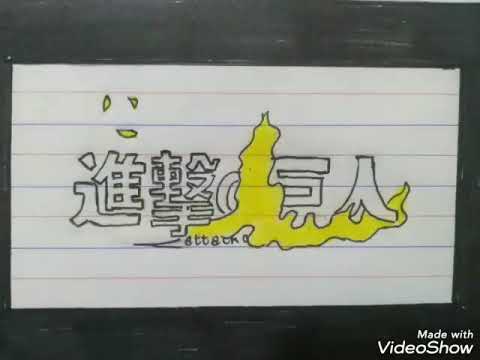 進撃の巨人
attack o
Made with
VideoShow